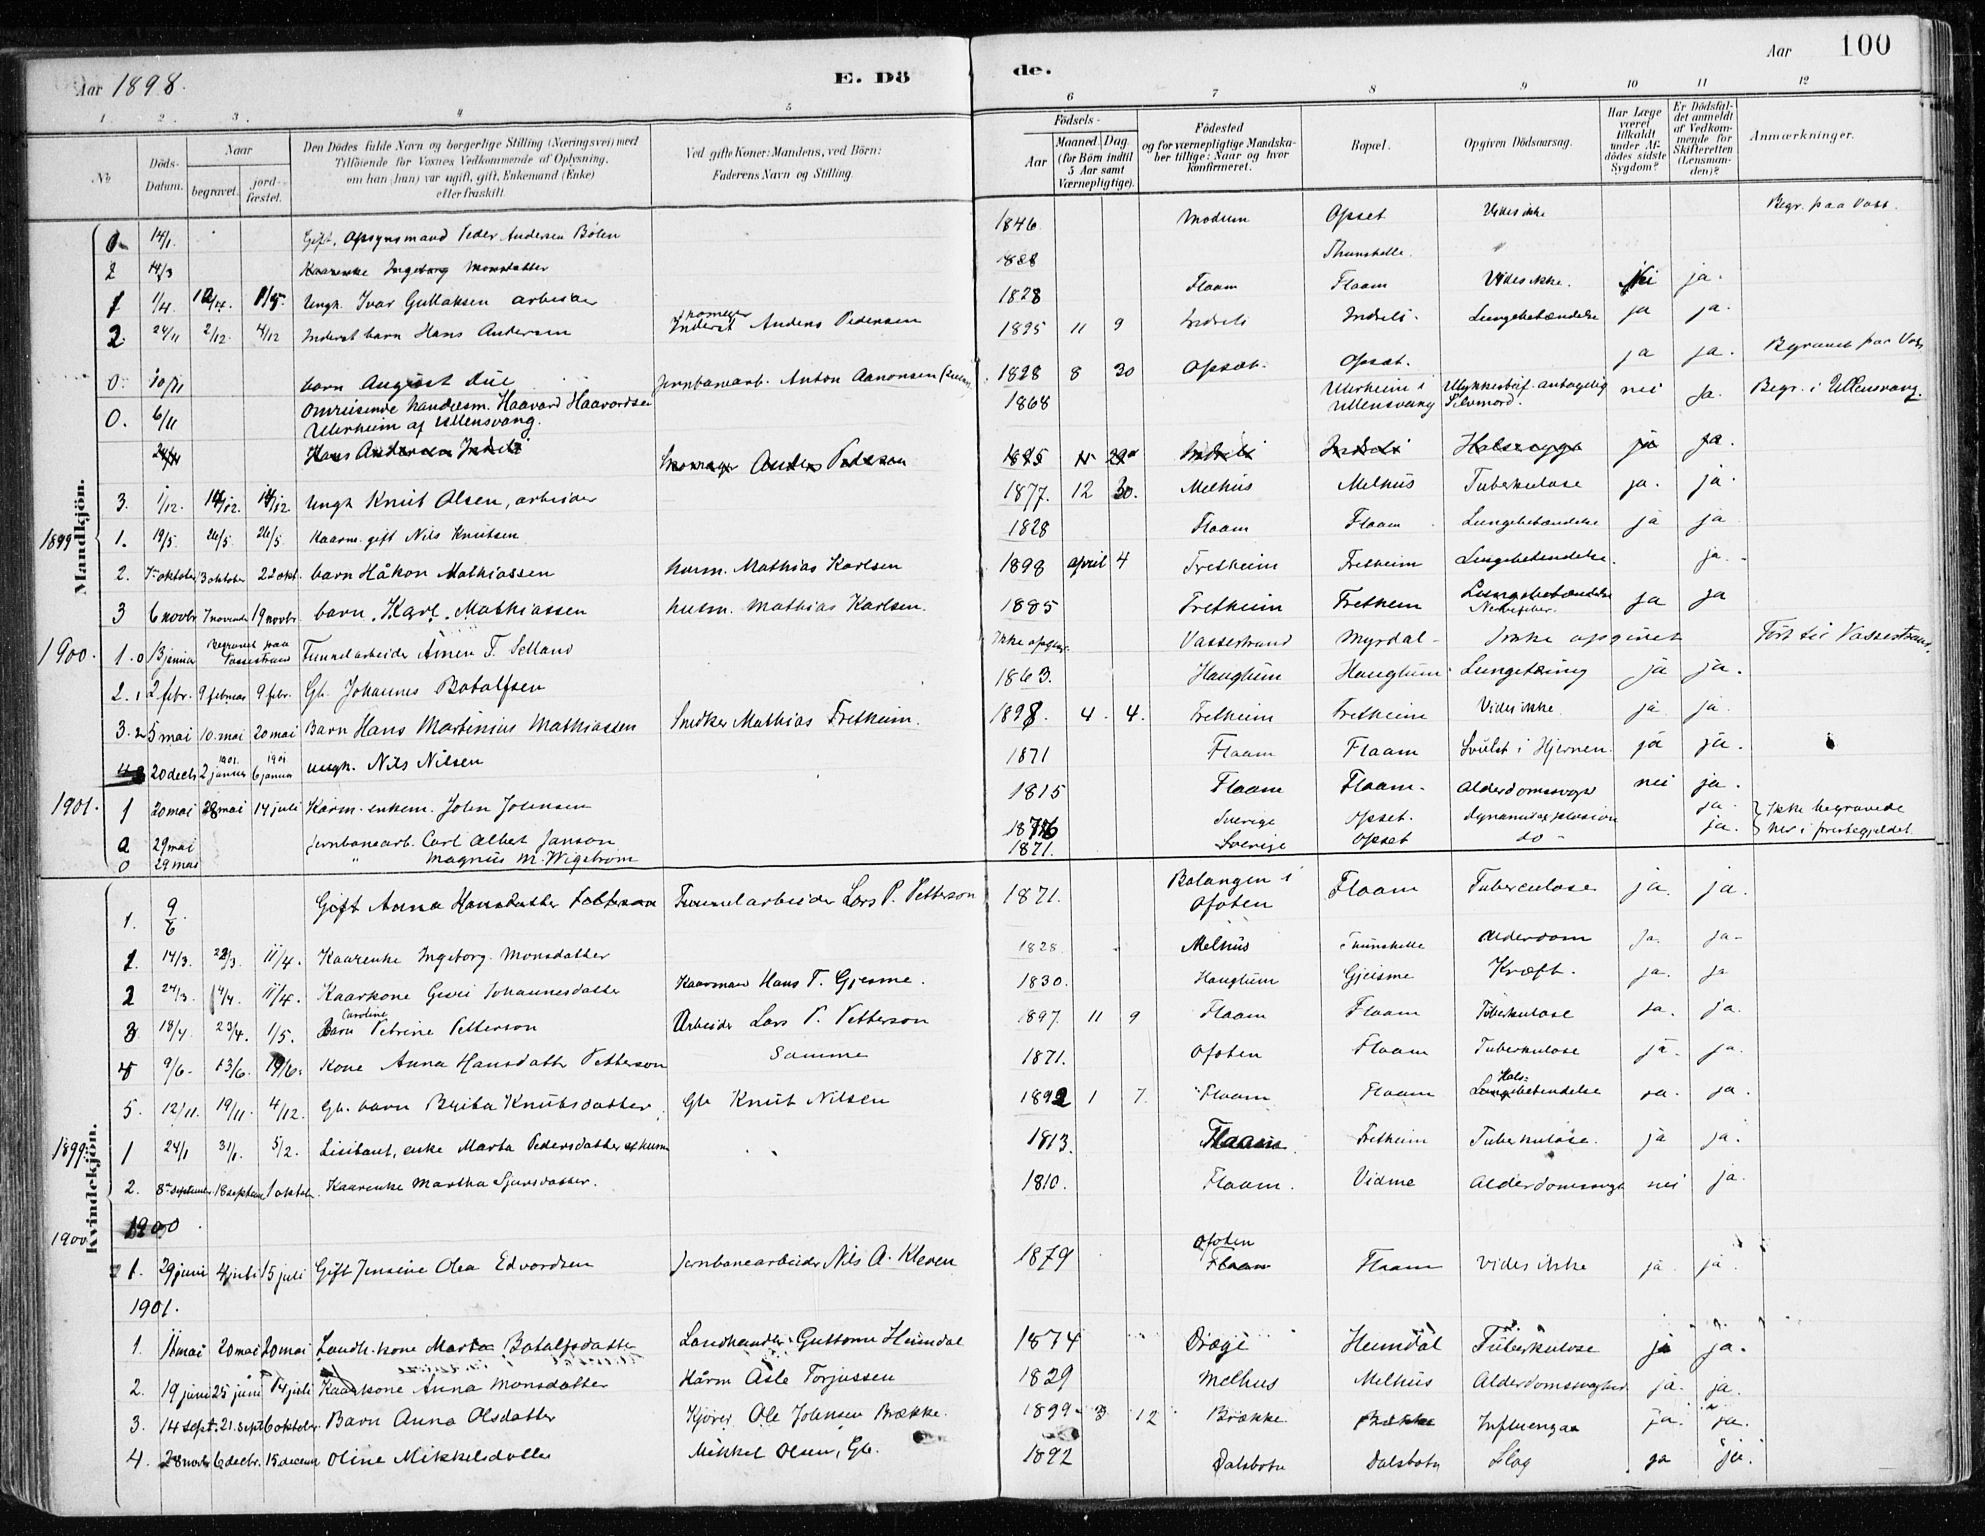 Aar 1898.
E. Dö
de.
Aar
100
1. 2. 3. 4 5 6 7 8 9 10 11 12
No
Döds-Datum.
Naar
begravet.
jord-fæstet.
Den Dödes fulde Navn og borgerlige Stilling (Næringsvei) med
Tilföiende for Voxnes Vedkommende af Oplysning,
om han (hun) var ugift, gift, Enkemand (Enke)
eller fraskilt.
Ved gifte Koner: Mandens, ved Börn:
Faderens Navn og Stilling.
Födsels-
Aar
Maaned. Dag.
(for Börn indtil 5 Aar samt Værnepligtige).
Födested
og for værnepligtige Mandska-
ber tillige: Naar og hvor
konfirmeret.
Bopæl.
Opgiven Dödsaarsag.
Har Læge været tilkaldt under Af-dödes sidste Sygdom?
Er Dödsfal-det anmeldt af Vedkom-mende for Skifteretten (Lensman-den)?
Anmærkninger.
Mandkjön.
0 14/1 Gift, Opsynsmand Peder Andersen Bölen 1846 Modum Opset Vides ikke Begr. paa Voss.
2 14/3 Kaarenke Ingeborg Monsdatter 1828 Thunshelle.
1 1/4 12/4. 1/5. Ungk. Ivar Gullaksen arbeider 1828 Flaam Flaam Vides ikke. Nei ja.
2. 24/11 2/12. 4/12 Inderst barn Hans Andersen Inderst Skomager Anders Pedersen 1895 11 9 Indreli Indreli. Lungebetændelse ja ja.
0. 10/11 barn August Due Jernbanearb. Anton Aanonsen 1828 8 30 Opsæt. Opsæt. ja ja. Begravet paa Voss
0. 6/11 Omreisende handelsm. Haavard Haavardsen
Ulerheim af Ullensvang. 1868 Ulerheim i Ullensvang Ulykkestilf. antagelig Selvmord. nei ja. Begr. i Ullensvang.
24/11 Hans Andersen Indreli Skomager Anders Pedersen 1895 11 29 Indreli Indreli Halssyge ja ja.
3. 1/12. 14/12. 14/12 Ungk Knut Olsen, arbeider 1877. 12 30. Melhus Melhus Tuberkulose ja. ja.
1899 1. 19/5 26/5. 26/5 Kaarm. gift Nils Knutsen 1828 Flaam Flaam Lungebetændelse ja ja
2. 7de oktober 13 oktober 22 okt. barn Håkon Mathiassen husm. Mathias Karlsen 1898 april 4 Fretheim Fretheim Lungebetendelse. ja.
3 6 novbr 7 november 19 novbr barn. Karl. Mathiassen husm. Mathias Karlsen. 1885 Fretheim Fretheim Lungebetændelse Nervefeber. ja ja
1900. 1. 0 13 januar Begravet paa Vassestrand Tunnelarbeider Amen T. Selland Ikke opgiv. Vassestrand Myrdal - Ikke opgivet Fört til Vassestrand.
2. 1 2 febr. 9 februar 9 febr. Gb. Johannes Botolfsen 1863. Hauglum Hauglum Lungetæring ja ja.
3. 2 5 mai 10. mai 20 mai Barn Hans Martinius Mathiassen Snidker Mathias Fretheim. 1898. 4. 4. Fretheim Fretheim Vides ikke ja. ja.
3 20 decbr 2 januar 1901 6 januar 1901 ungk. Nils Nilsen 1871 Flaam Flaam Svulst i Hjernen. ja ja.
1901. 1 20 mai 28 mai 14 juli Kårm. enkem. John Johnsen 1815 Flaam Flaam. Alderdomssvagh nei ja.
0 29 mai Jernbanearb. Carl Albert Janson 1876 Sverige Opset. dynamitexplosion ja. Ikke begravede
0 29 mai " Magnus M. Wigstrom 1871. Sverige Opset do - ja. her i prestegjeldet.
Kvindekjön.
1. 9/6 Gift Anna Hansdatter Petterson Tunnelarbeider Lars P. Petterson 1871. Balangen i Ofoten Flaam Tuberculose ja. ja.
1. 14/3. 22/3. 11/4. Kaarenke Ingeborg. Monsdatter 1828. Melhus Thunshelle Alderdom ja. ja.
2 24/3. 4/4. 11/4. Kaarkone Gjøri Johannesdatter Kaarmand Hans T. Gjesme. 1830. Hauglum Gjeisme Kræft. ja. ja
3 18/4 23/4. 1/5. Barn Caroline Petrine Petterson Arbeider Lars P. Petterson 1897. 11 9 Flaam Flaam Tuberkulose ja. ja.
4 9/6. 13/6. 19/6. Kone Anna Hansdatter Petterson Samme 1871. Ofoten Flaam Tuberkulose ja. ja.
5. 12/11. 19/11. 4/12. Gb. barn Brita Knutsdatter. Gb Knut Nilsen 1892 1 7. Flaam Flaam Hals-betendelse ja. ja.
1899: 1 24/1 31/1. 5/2. enke Marta Pedersdatter 1813. Flaam Fretheim Tuberkulose. ja ja.
2. 8de september 18 september 1 oktober Kaarenke Martha Sjursdatter. 1810. Flaam. Vidme Alderdomssvagh nei ja.
1900.
1900 1. 29 juni 4 juli 15 juli Gift Jensine Olea Edvardsen Jernbanearbeider Nils A. Kleven 1879 Ofoten Flaam Flaam vides ikke ja ja
1901.
1. 11 mai 20 mai 20 mai Landh. kone Marta Botolfsdatter Landhandler Guttorm Heimdal 1874 Drægi Heimdal Tuberkulose ja ja.
2. 19 juni 25 juni 14 juli Kaarkone Anna Monsdatter Kårm Asle Torjussen 1829 Melhus Melhus Alderdomssvaghed ja. ja.
3. 14 sept. 21. sept. 6 oktober Barn Anna Olsdatter Kjører Ole Johnsen Brække. 1899 3 12 Brække Brække Influenza ja. ja.
4. 28 novbr 6 decbr. 15 december Oline Mikkelsdatter Mikkel Olsen, Gb. 1892 Dalsbotn Dalsbotn Slag ja ja.